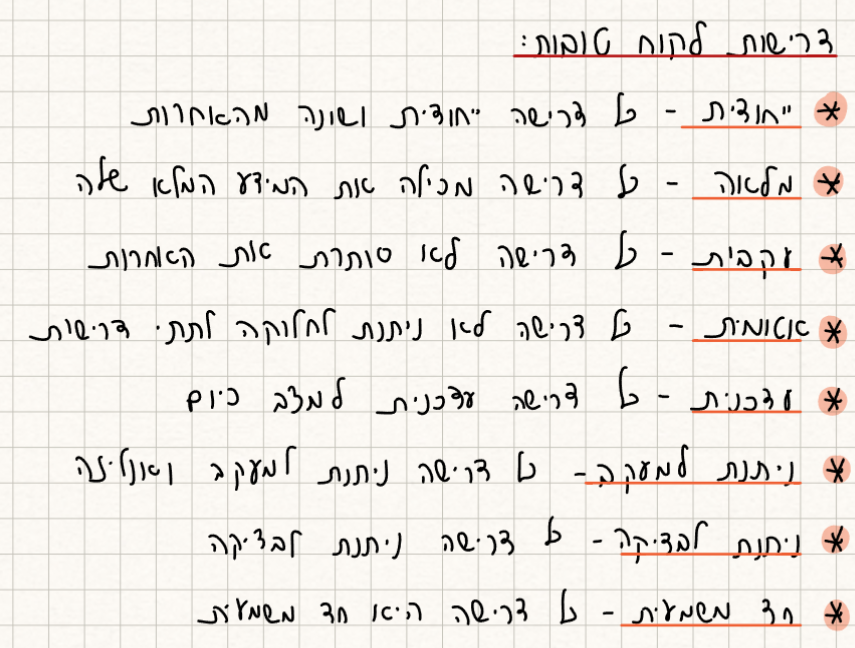 דרישות לקוח טובות:
* ייחודית - כל דרישה ייחודית ושונה מהאחרות
* מלאה - כל דרישה מכילה את המידע המלא שלה
* עקבית - כל דרישה לא סותרת את האחרות
* אטומית - כל דרישה לא ניתנת לחלוקה לתתי דרישות
* עדכנית - כל דרישה עדכנית למצב כיום
* ניתנת למעקב - כל דרישה ניתנת למעקב ואנליזה
* ניתנת לבדיקה - כל דרישה ניתנת לבדיקה
* חד משמעית - כל דרישה היא חד משמעית